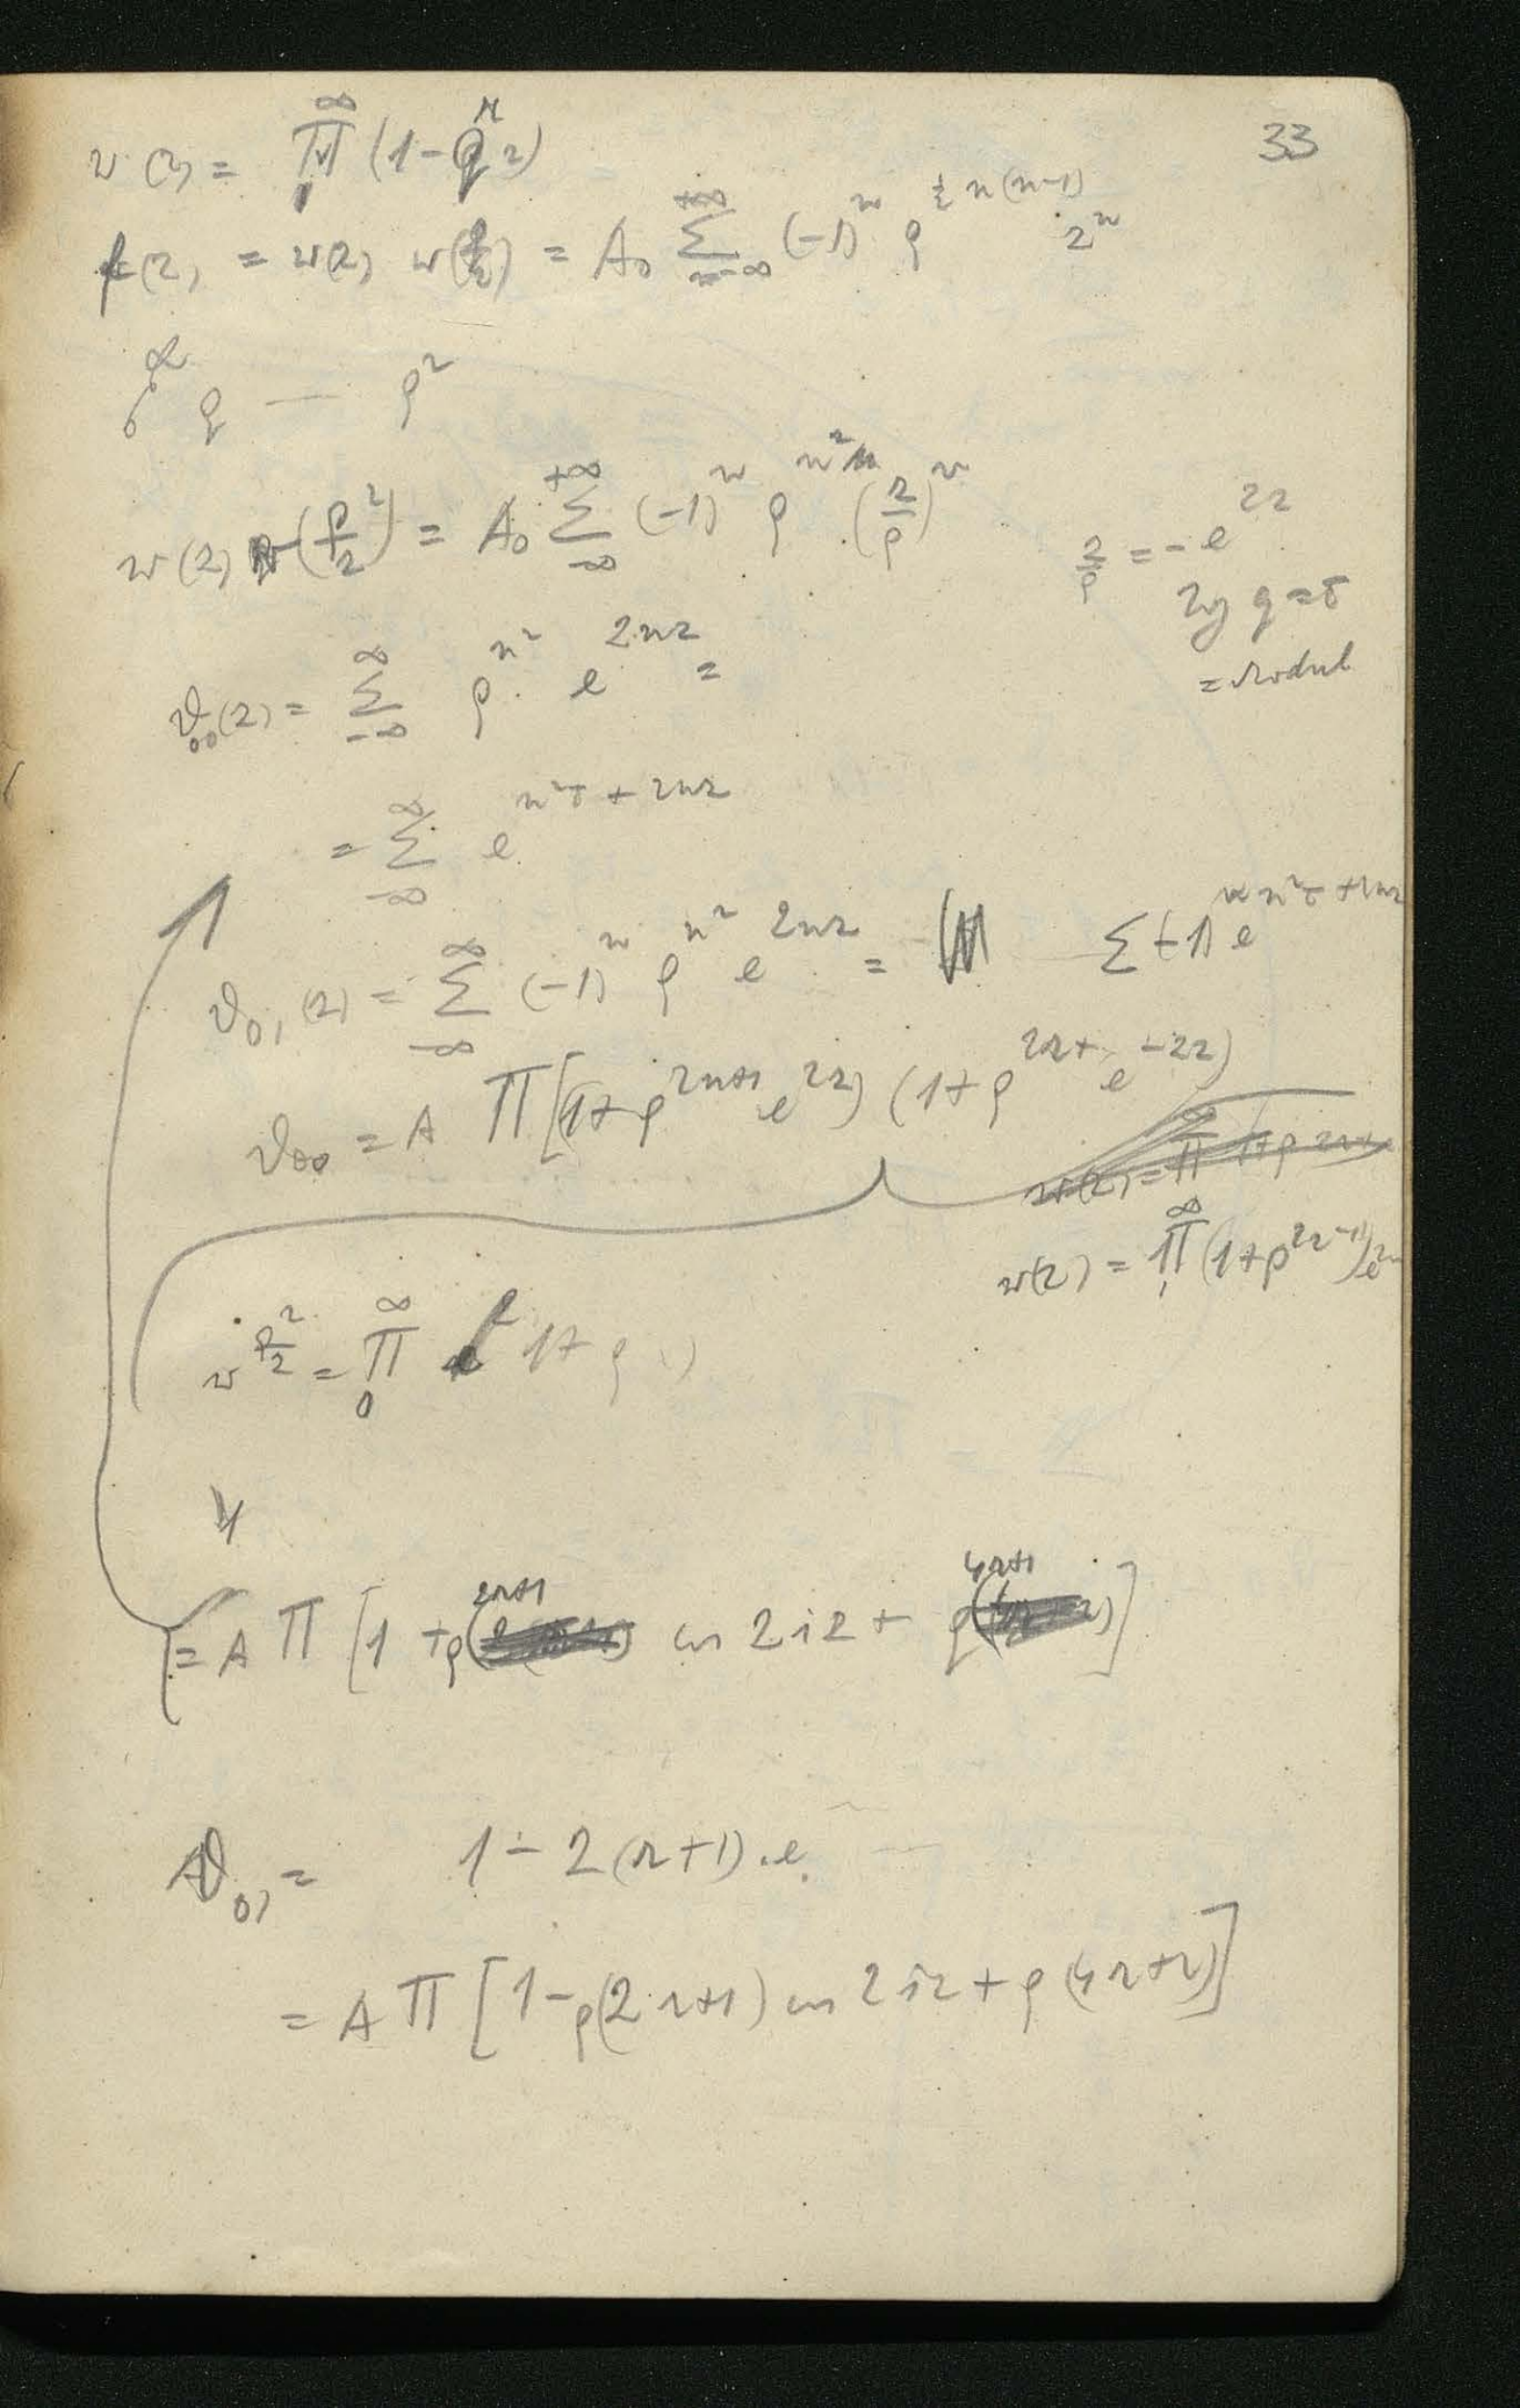 33
w(z) = ∏₀^∞ (1 - ρ^n z)
f(z) = w(z) w(ρ/z) = A₀ ∑_{n=-∞}^{+∞} (-1)^n ρ^{½ n(n-1)} z^n
ρ — ρ²
w(z) w(ρ²/z) = A₀ ∑_{-∞}^{+∞} (-1)^n ρ^{n²} (z/ρ)^n
z/ρ = -e^{2z}
lg ρ = τ
= Modul
ϑ₀₀(z) = ∑_{-∞}^{∞} ρ^{n²} · e^{2nz} =
= ∑_{-∞}^{∞} e^{n²τ + 2nz}
ϑ₀₁(z) = ∑_{-∞}^{∞} (-1)^n ρ^{n²} e^{2nz} = ∑ (-1)^n e^{n²τ + 2nz}
ϑ₀₀ = A ∏ [(1+ρ^{2n+1} e^{2z}) (1+ρ^{2n+1} e^{-2z})
w(z) = ∏₁^∞ (1+ρ^{2n-1}) e^{2z}
w ρ²/z = ∏₀^∞ 1+ρ )
= A ∏ [1 + ρ^{2n+1} cos 2iz + ρ^{4n+1}]
ϑ₀₁ = 1 - 2(n+1) . e
= A ∏ [1 - ρ(2n+1) cos 2iz + ρ(4n+2)]